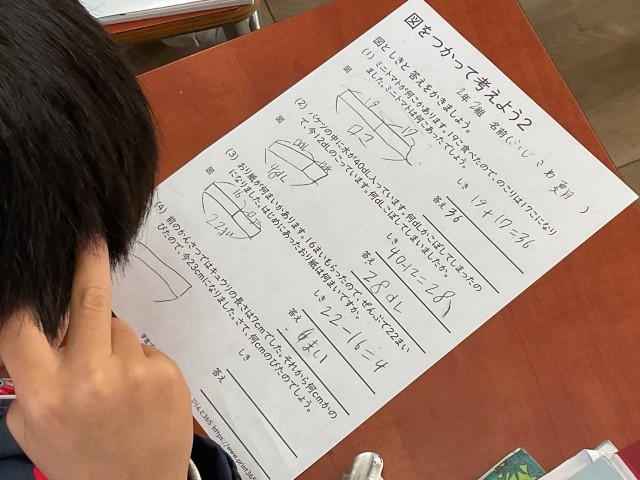 図をつかって考えよう2
2年 2組 名前(
図としきと答えをかきましょう。
(1) ミニトマトが何こかあります。19こ食べたので、のこりは17こになり
ました。ミニトマトは何こあったでしょう。
図
19
17
しき 19+17=36
答え 36
(2) バケツの中に水が40dL入っています。何dLかこぼしてしまったの
で、今12dLのこっています。何dLこぼしてしまいましたか。
図
しき 40-12=28
答え 28dL
(3) おり紙が何まいかあります。16まいもらったので、ぜんぶで22まい
になりました。はじめにあったおり紙は何まいですか。
図
16
22まい
しき 22-16=4
答え 4まい
(4) 前のかんさつではキュウリの長さは7cmでした。それから何cmかの
びたので、今23cmになりました。さて、何cmのびたのでしょう。
しき
答え
https://www.print365